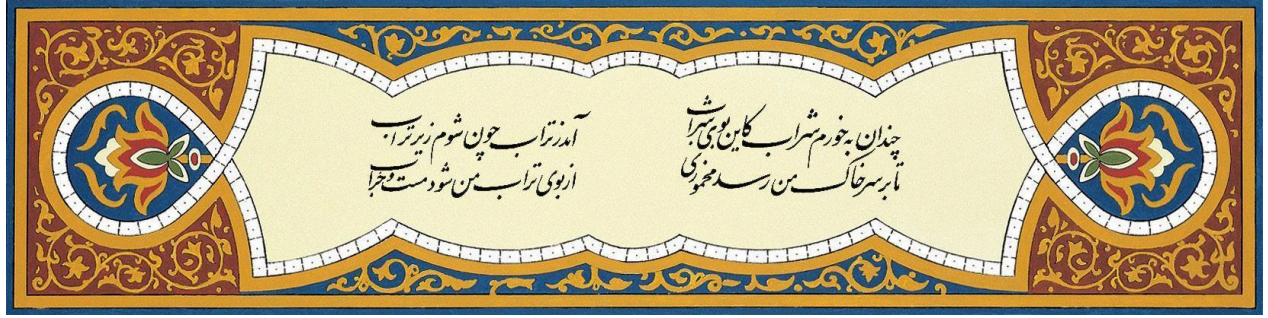 چندان به خورم شراب کاین بوی شراب
آمد ز تراب چون شوم زیر تراب
تا بر سر خاک من رسد مخموری
از بوی تراب من شود مست و خراب